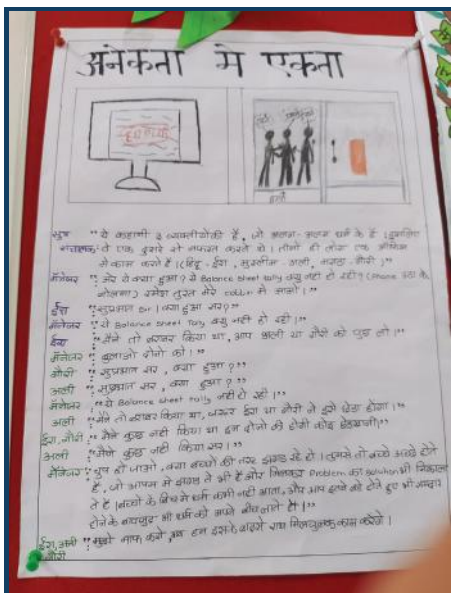 अनेकता मे एकता
सूत्र "ये कहानी ३ व्यक्तीयोकी है, जो अलग-अलग धर्म के है। इसलिए
संचालक: वे एक दुसरे से नफरत करते थे। तीनो ही लोग एक ऑफिस
मे काम करते है। (हिंदू-ईरा, मुस्लीम-अली, मराठा-गौरी)"
मॅनेजर "अरे ये क्या हुआ? ये Balance sheet tally क्यु नही हो रही? (Phone उठा के
बोलना) रमेश तुरंत मेरे cabbin मे आओ।"
ईरा "सुप्रभात sir। क्या हुआ सर?"
मॅनेजर "ये Balance sheet tally क्यु नही हो रही।"
ईरा "मैंने तो बराबर किया था, आप अली या गौरी को पुछ लो।"
मॅनेजर "बुलाओ दोनो को।"
गौरी "सुप्रभात सर, क्या हुआ?"
अली "सुप्रभात सर, क्या हुआ?"
मॅनेजर "ये Balance sheet tally नही हो रही।"
अली "मैंने तो बराबर किया था, जरूर ईरा या गौरी ने इसे छेडा होगा।"
ईरा, गौरी "मैंने कुछ नही किया था इन दोनो की होगी कोई छेडखानी।"
अली "मैंने कुछ नही किया सर।"
मॅनेजर "चुप हो जाओ, क्या बच्चो की तरह झगड रहे हो। तुमसे तो बच्चे अच्छे होते
है, जो आपस मे झगड ते भी है और मिलकर Problem का Solution भी निकाल
ते है। बच्चो के बिच मे धर्म कभी नही आता, और आप इतने बडे होते हुए भी समझदार
होने के बावजुद भी धर्म को अपने बीच लाते हो।"
ईरा, अली "मुझे माफ करो, अब हम इसके बाद से साथ मिलजुलकर काम करेंगे।
गौरी